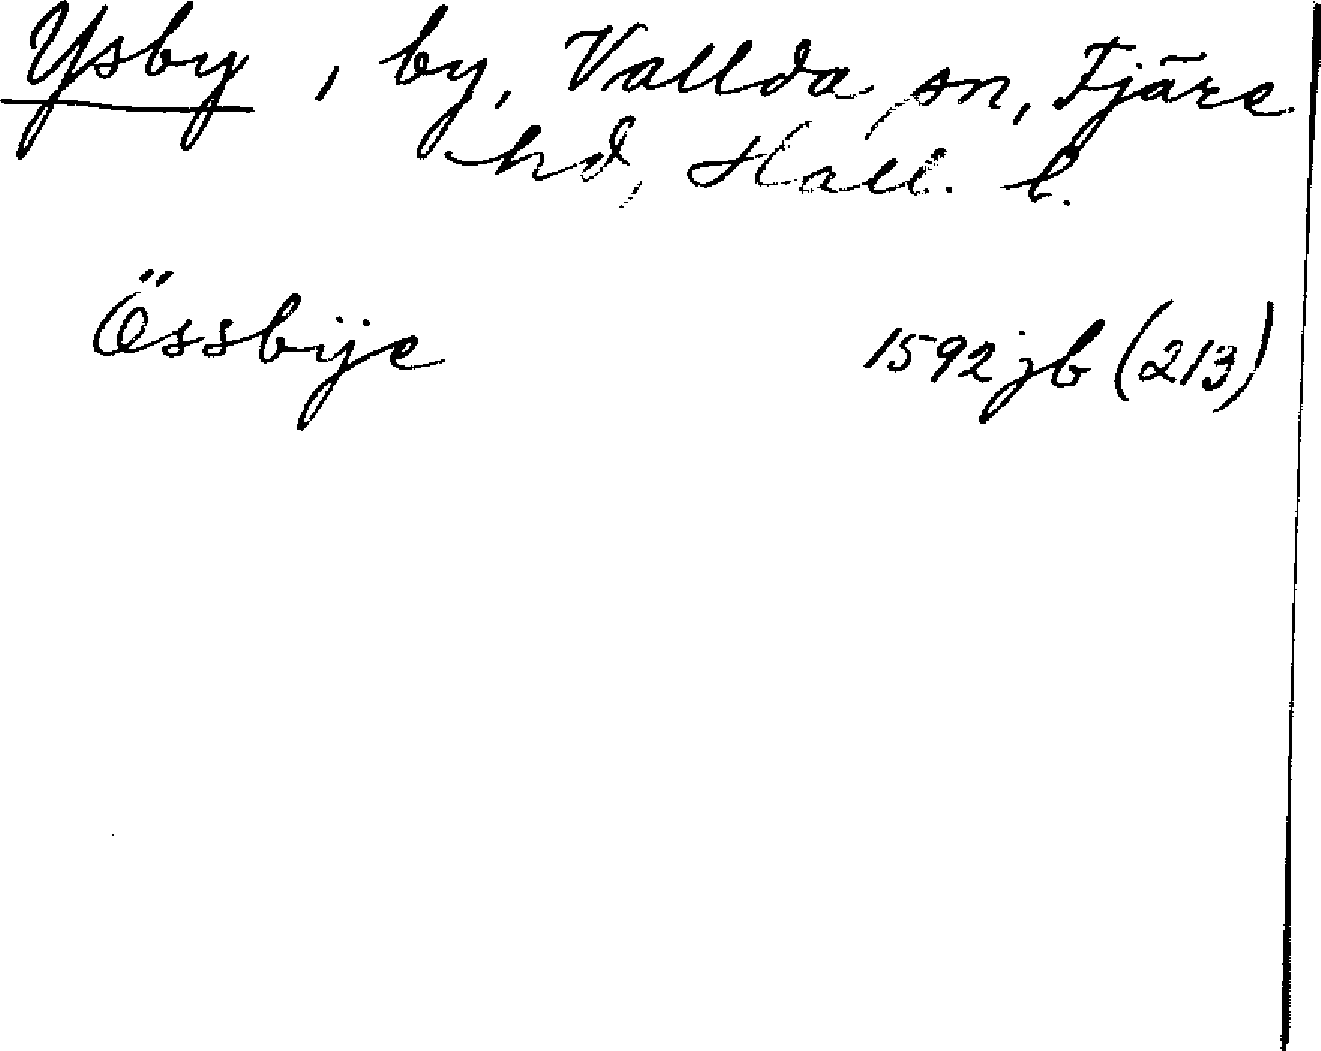 Ysby, by, Vallda sn, Fjäre
hd, Hall. l.
Össbije 1592 jb (213)